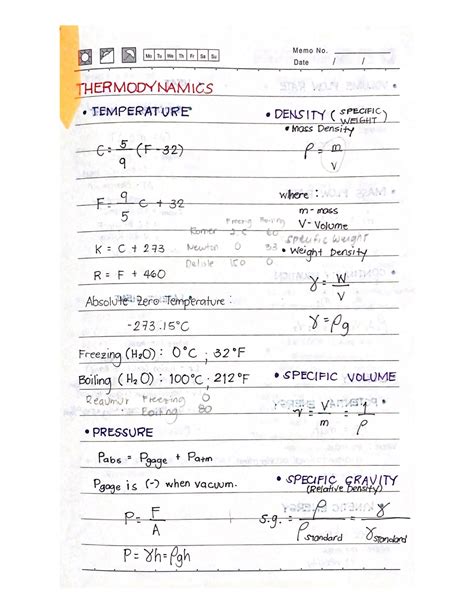 Mo Tu We Th Fr Sa Su
Memo No.
Date / /
THERMODYNAMICS
• TEMPERATURE
C = 5/9 (F - 32)
F = 9/5 C + 32
Freezing Boiling
Romer 60
Newton 0 33
Delisle 150 0
K = C + 273
R = F + 460
Absolute Zero Temperature :
-273.15°C
Freezing (H₂O) : 0°C ; 32°F
Boiling (H₂O) : 100°C ; 212°F
Reaumur Freezing 0
: Boiling 80
• PRESSURE
Pabs = Pgage + Patm
Pgage is (-) when vacuum.
P = F/A
P = γh = ρgh
• DENSITY ( SPECIFIC WEIGHT )
• Mass Density
ρ = m/v
where :
m - mass
V - Volume
Specific Weight
• Weight Density
γ = W/V
γ = ρg
• SPECIFIC VOLUME
= V/m = 1/ρ
• SPECIFIC GRAVITY
(Relative Density)
s.g. = ρ/ρstandard = γ/γstandard